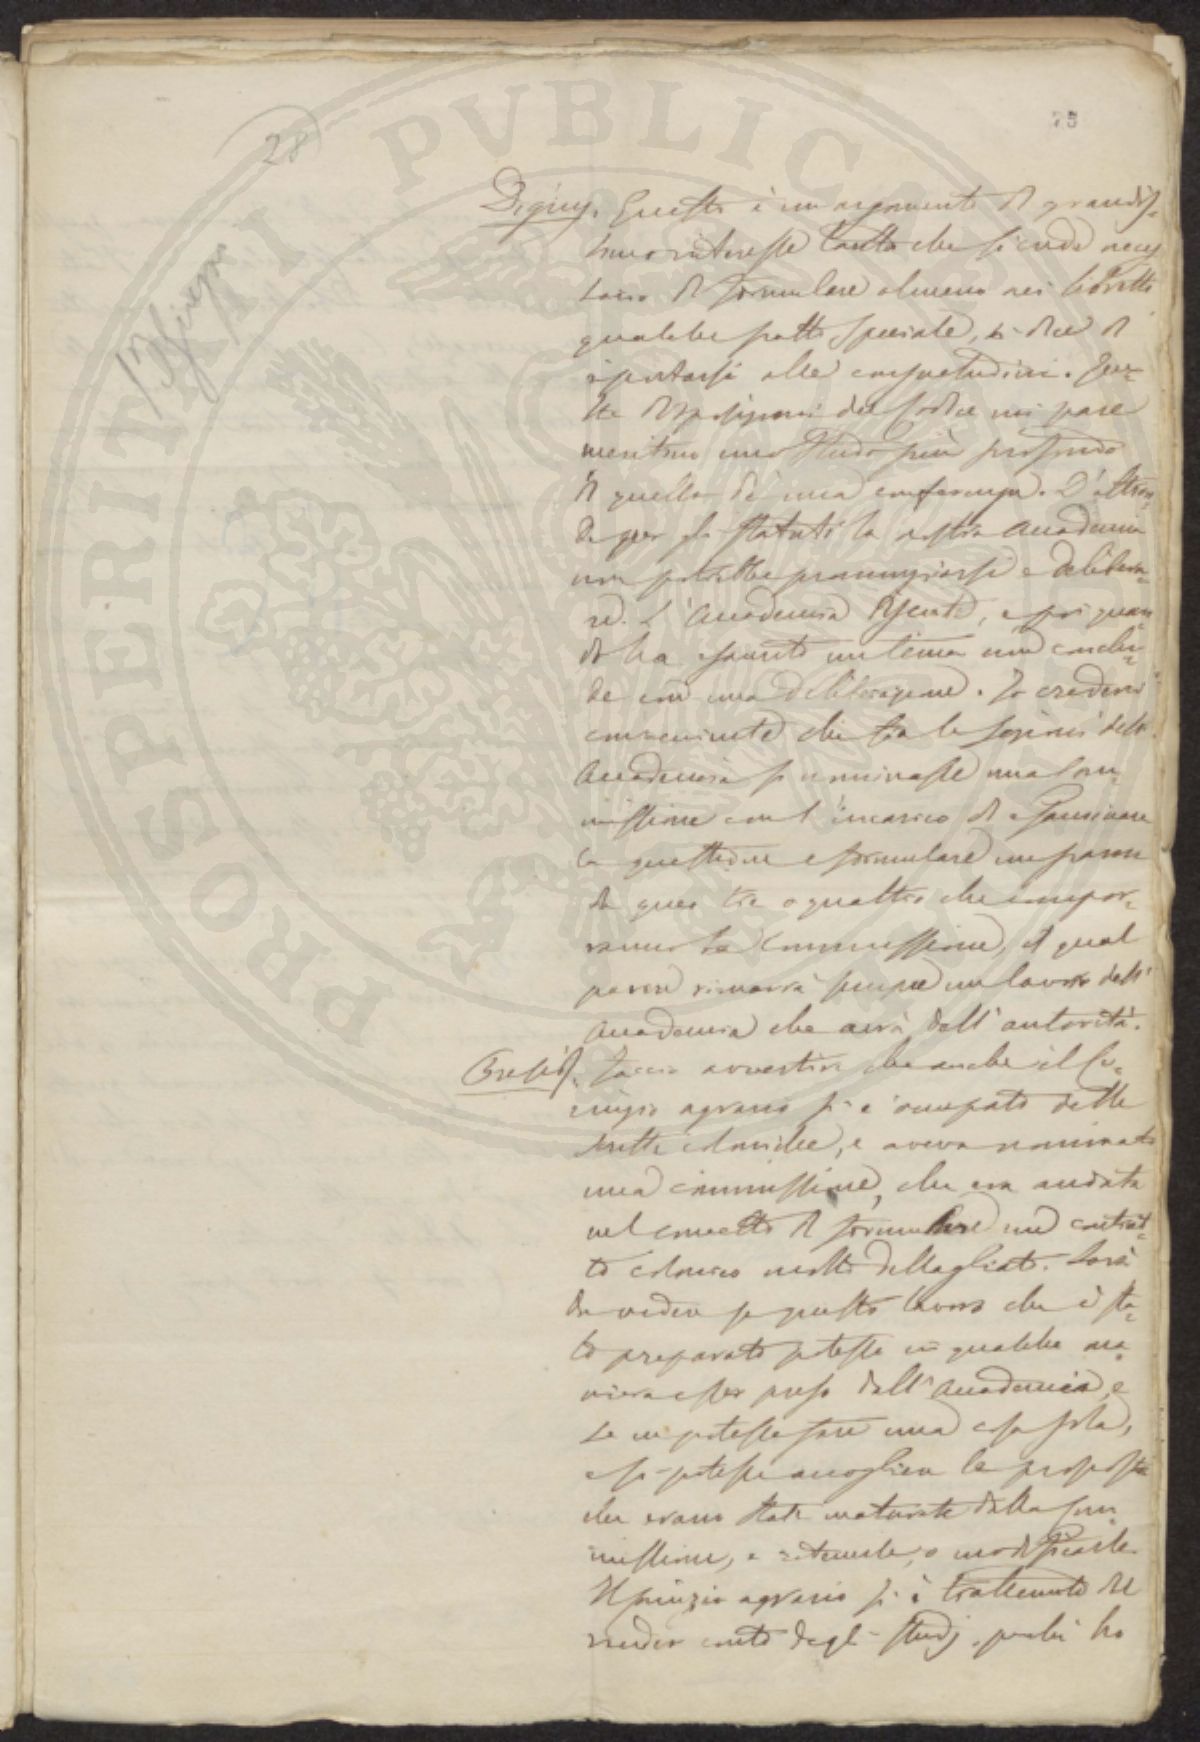 75
28
13 giugno
PROSPERITATI PVBLICAE
Digny. Questo è un argomento di grandis-
simo interesse tanto che si crede neces
sario di formulare almeno nei libretti
qualche patto speciale, si dice di
riportarsi alle consuetudini. Que-
ste disposizioni del Codice mi pare
meritino uno studio più profondo
di quello di una conferenza. D'altron-
de per gli statuti la nostra Accademia
non potrebbe pronunziarsi e delibera-
re. L'Accademia discute, e poi quan-
do ha esaurito un tema non conclu-
de con una deliberazione. Io crederei
conveniente che tra le sezioni dell'
Accademia si nominasse una Com-
missione con l'incarico di esaminare
la questione e formulare un parere
di quei tre o quattro che compor-
ranno la Commissione, il qual
parere rimarrà sempre un lavoro dell'
Accademia che avrà dell'autorità.
Presid. Faccio avvertire che anche il Co-
mizio agrario si è occupato delle
scritte coloniche, e aveva nominato
una commissione, che era andata
nel concetto di formulare un contrat-
to colonico molto dettagliato. Sarà
da vedere se questo lavoro che è sta-
to preparato potesse in qualche ma-
niera esser preso dall'Accademia, e
se ne potesse fare una cosa sola,
essa potesse accogliere le proposte
che erano state maturate dalla Com-
missione, e ritenerle, o modificarle.
Il Comizio agrario si è trattenuto del
render conto degli studj, perché ho